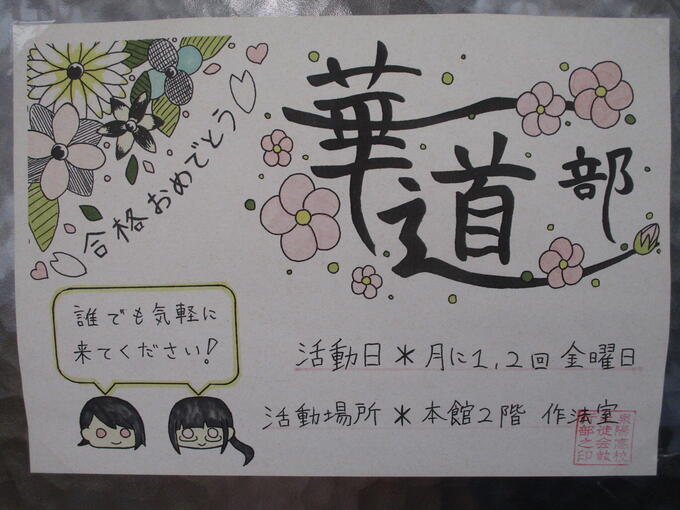 合格おめでとう
華道部
誰でも気軽に
来てください!
活動日＊月に1,2回 金曜日
活動場所＊本館2階 作法室